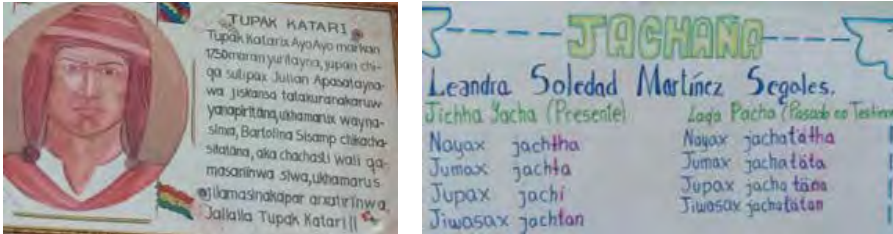 TUPAK KATARI
Tupak Katarix AyoAyo markan
1750maran yuritayna, jupan chi-
qa sutipax Julian Apasatayna-
wa jiskansa tatakuranakaruw
yanapiritäna, ukhamarix wayna-
sima, Bartolina Sisamp chikacha-
sitatäna, aka chachasti wali qa-
masaniinwa siwa, ukhamarus
jilamasinakapar arxatirïnwa.
Jallalla Tupak Katari!!
JACHAÑA
Leandra Soledad Martínez Segales.
Jichha Pacha (Presente)
Nayax jachtha
Jumax jachta
Jupax jachi
Jiwasax jachtan
Laqa Pacha (Pasado no Testimo
Nayax jachatätha
Jumax jachatäta
Jupax jachatäna
Jiwasax jachatätan